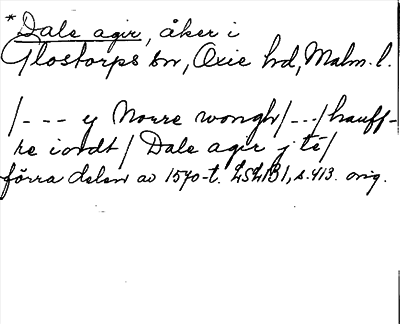 *Dale agir, åker i
Glostorps sn, Oxie hd, Malm. l.
/--- y Norre wongh/---/hauff-
re iordt/ Dale agir j tē/
förra delen av 1540-t. LSLB1, s. 413. orig.